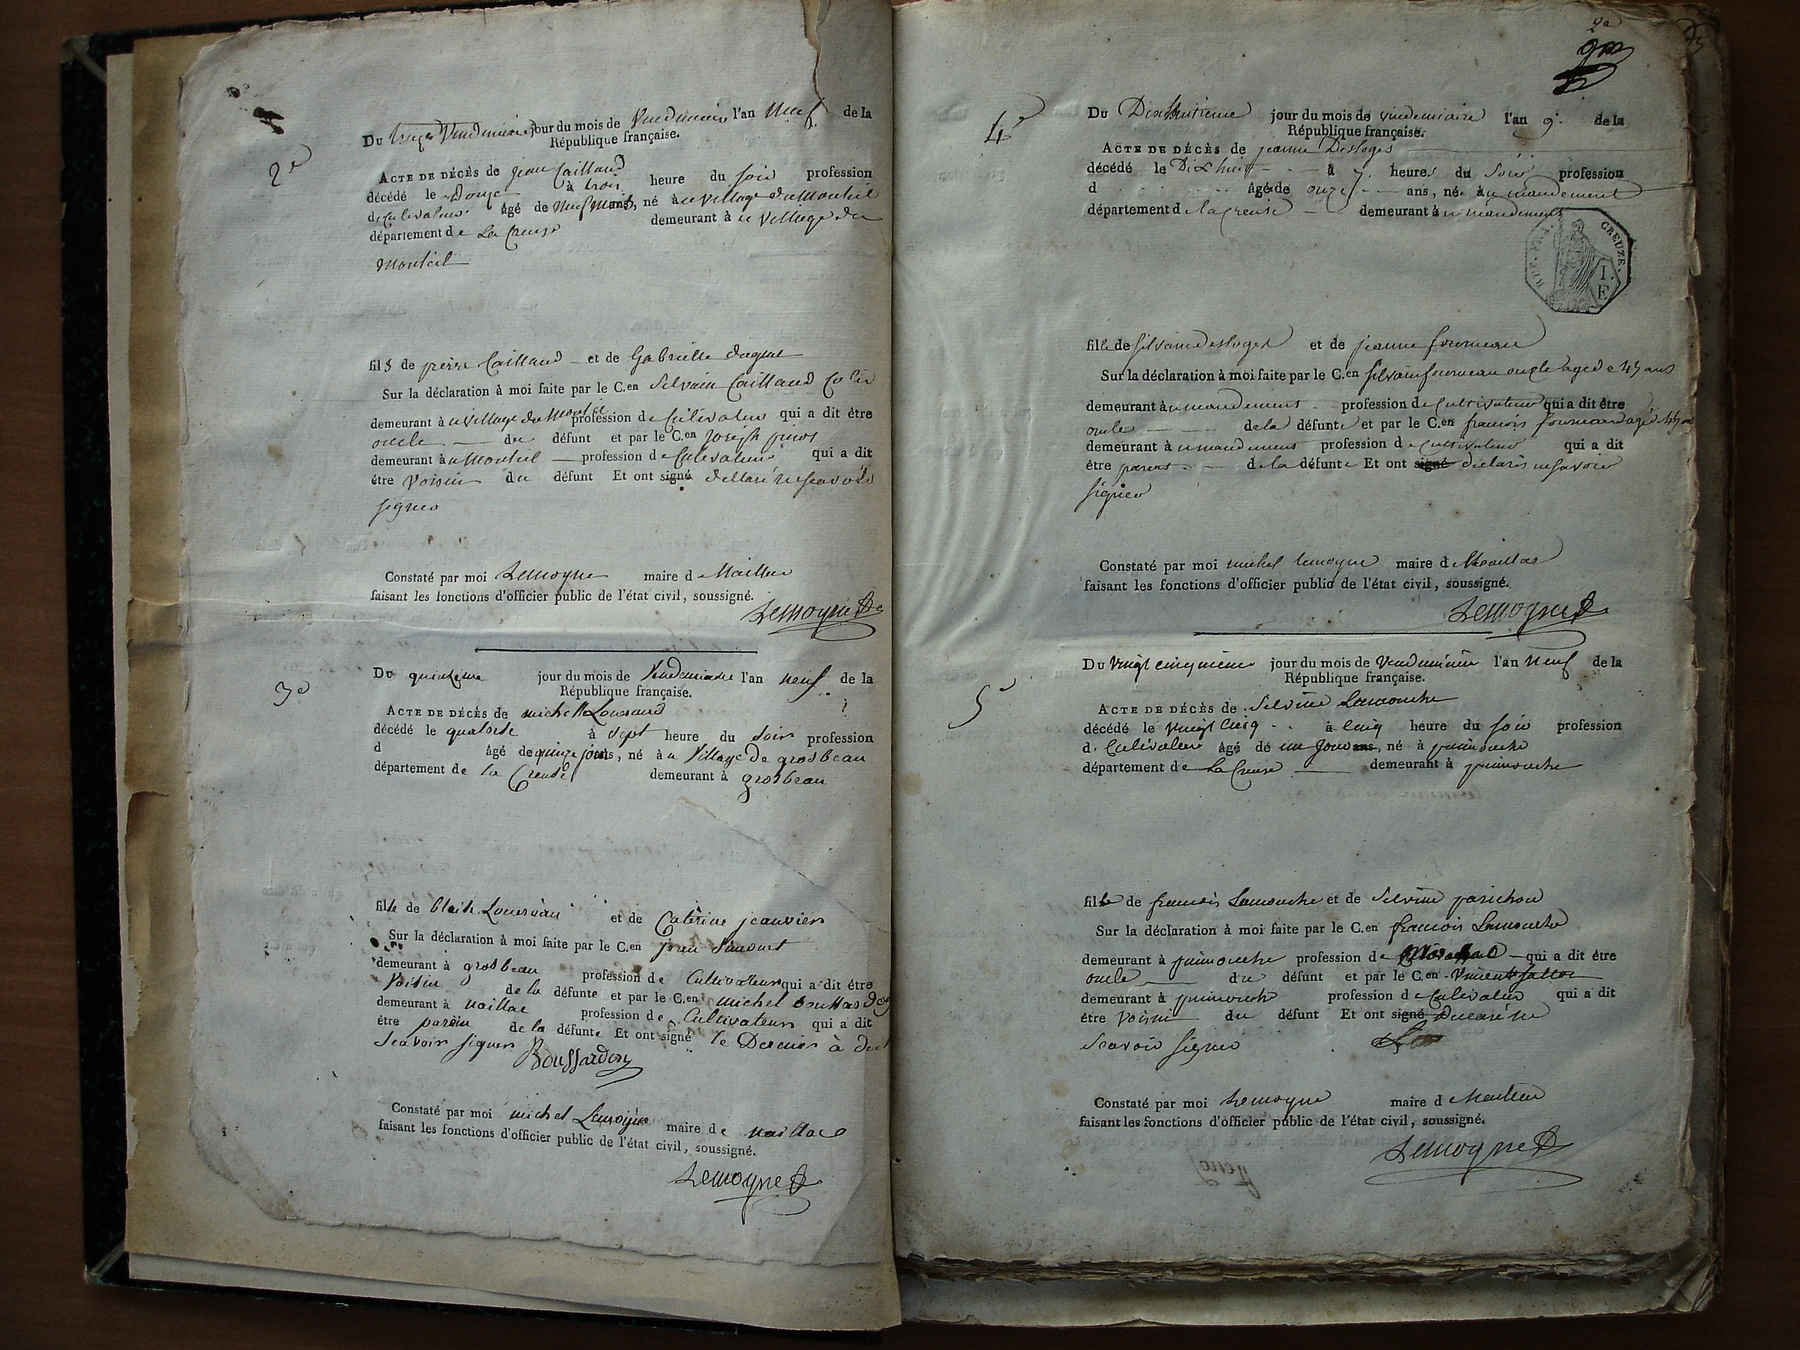 2e
Du treize Vendemiaire jour du mois de Vendemiaire l'an neuf de la
République française.
ACTE DE DÉCÈS de jean Caillaud
décédé le Douze à trois heure du soir profession
de Cultivateur âgé de neuf mois ans, né à u village du Monteil
département de La Creuse demeurant à u village du
Monteil
fils de pierre Caillaud et de Gabrielle
Sur la déclaration à moi faite par le C.en Selvain Caillaud
demeurant à u village du Monteil profession de Cultivateur qui a dit être
oncle du défunt et par le C.en joseph
demeurant à u Monteil profession de Cultivateur qui a dit
être Voisin du défunt Et ont signé déllaré ne scavoir
signer
Constaté par moi Lemoyne maire d
faisant les fonctions d'officier public de l'état civil, soussigné.
Lemoyne
3e
Du quinzieme jour du mois de Vendemiaire l'an neuf de la
République française.
ACTE DE DÉCÈS de michelle
décédé le quatorse à sept heure du soir profession
d âgé de quinze jours, né à u Village de grosbeau
département de la Creuse demeurant à grosbeau
fille de et de Caterine jeanvier
Sur la déclaration à moi faite par le C.en jean
demeurant à grosbeau profession de Cultivateur qui a dit être
Voisin de la défunte et par le C.en michel
demeurant à naillac profession de Cultivateur qui a dit
être parain de la défunte Et ont signé le Dernier
Scavoir signer Boussardon
Constaté par moi michel Lemoyne maire de naillac
faisant les fonctions d'officier public de l'état civil, soussigné.
Lemoyne
2e
4e
Du Dixhuitieme jour du mois de vendemiaire l'an 9. de la
République française.
ACTE DE DÉCÈS de jeanne Desloges
décédé le Dix huit à 7 heures du Soir profession
d âgée de onze ans, né à u mandement
département de la creuse demeurant à u mandement
REP. FRA. CREUZE.
fille de silvain desloges et de jeanne fourneau
Sur la déclaration à moi faite par le C.en silvain fourneau oncle agé de 45 ans
demeurant à u mandement profession de cultivateur qui a dit être
oncle de la défunte et par le C.en francois fourneau agé
demeurant à u mandement profession de cultivateur qui a dit
être parent de la défunte Et ont signé déclaré ne savoir
signer
Constaté par moi michel lemoyne maire de
faisant les fonctions d'officier public de l'état civil, soussigné.
Lemoyne
5e
Du Vingt cinquieme jour du mois de Vendemiaire l'an neuf de la
République française.
ACTE DE DÉCÈS de Selvine Lamouche
décédé le vingt cinq à cinq heure du soir profession
d. Cultivateur âgé de un jour ans, né à puimouche
département de La Creuse demeurant à puimouche
fille de francois Lamouche et de Selvine parichon
Sur la déclaration à moi faite par le C.en francois Lamouche
demeurant à puimouche profession de qui a dit être
oncle du défunt et par le C.en
demeurant à puimouche profession de Cultivateur qui a dit
être Voisin du défunt Et ont signé déclaré ne
scavoir signer
Constaté par moi Lemoyne maire d
faisant les fonctions d'officier public de l'état civil, soussigné.
Lemoyne